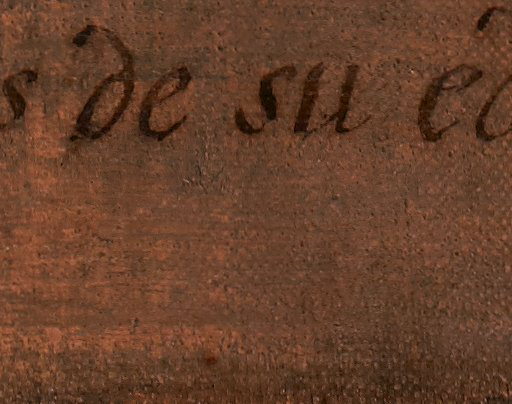 s de su ed